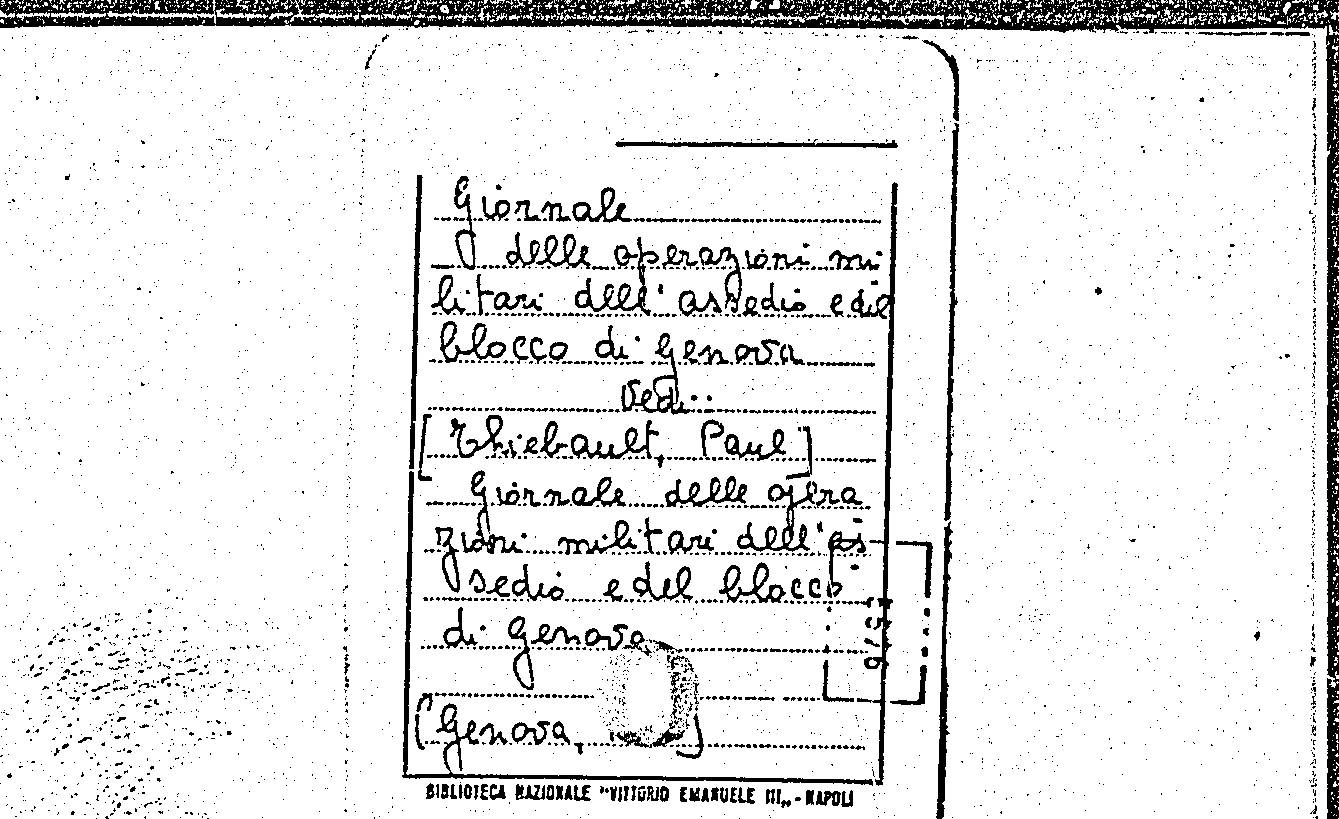 Giornale
delle operazioni mi-
litari dell'assedio e del
blocco di Genova
Vedi..
[Thiebault, Paul]
Giornale delle opera
zioni militari dell'as
sedio e del blocco
di Genova
(Genova,      )
BIBLIOTECA NAZIONALE "VITTORIO EMANUELE III„ - NAPOLI